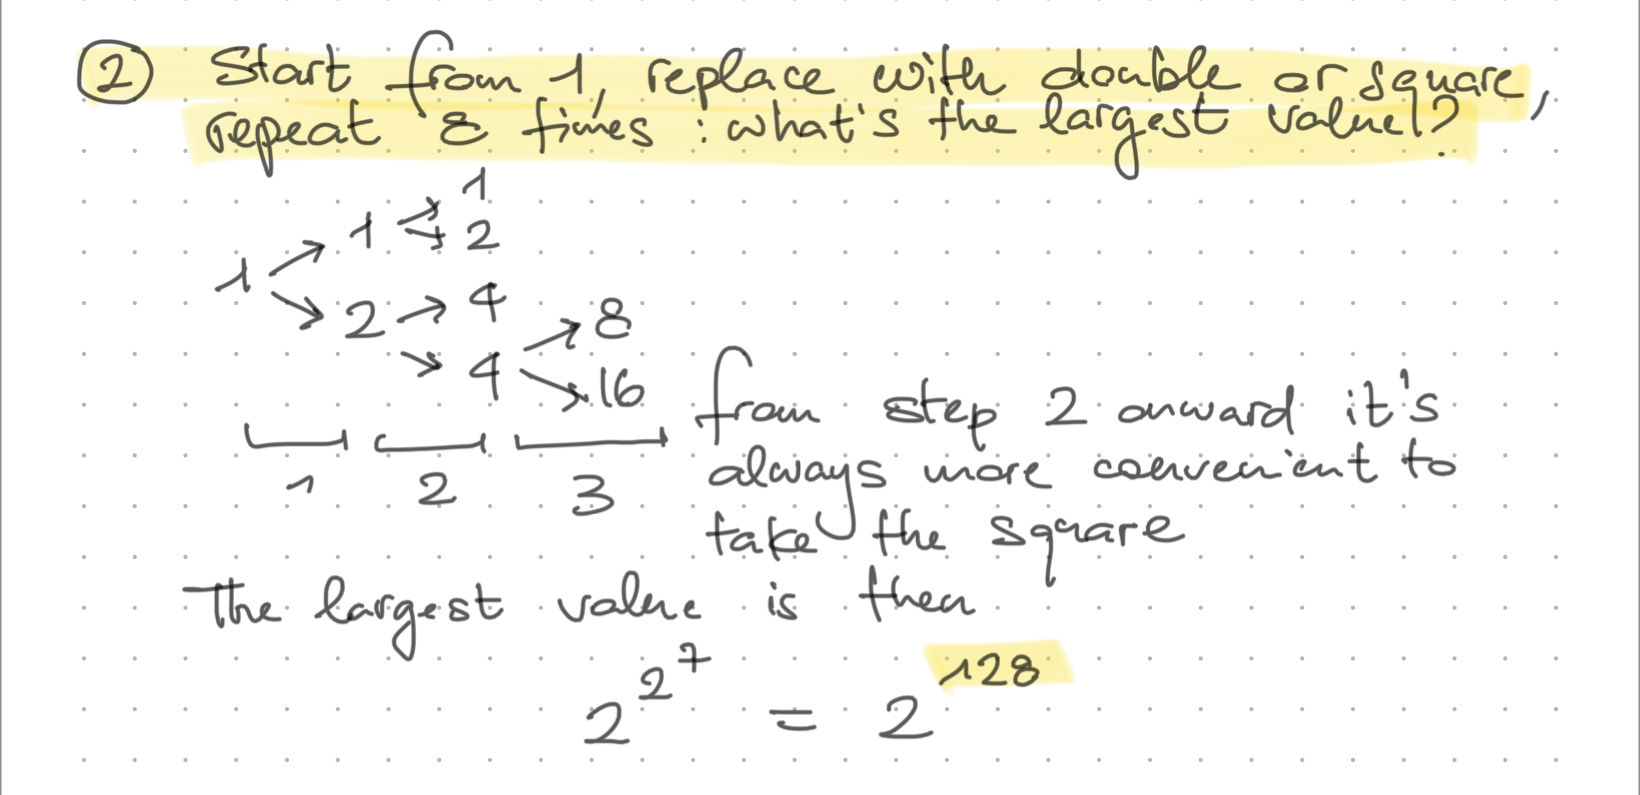 ② Start from 1, replace with double or square,
repeat 8 times : what's the largest value?
1
1 → 2
1 → 2 → 4
→ 8
→ 4 → 16
1 2 3
from step 2 onward it's
always more convenient to
take the square
The largest value is then
2^2^7 = 2^128